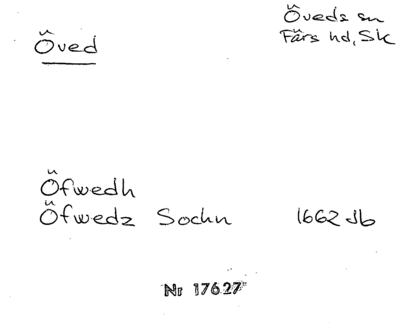 Öved
Öveds sn
Färs hd, Sk
Öfwedh
Öfwedz Sochn 1662 Jb
Nr 17627